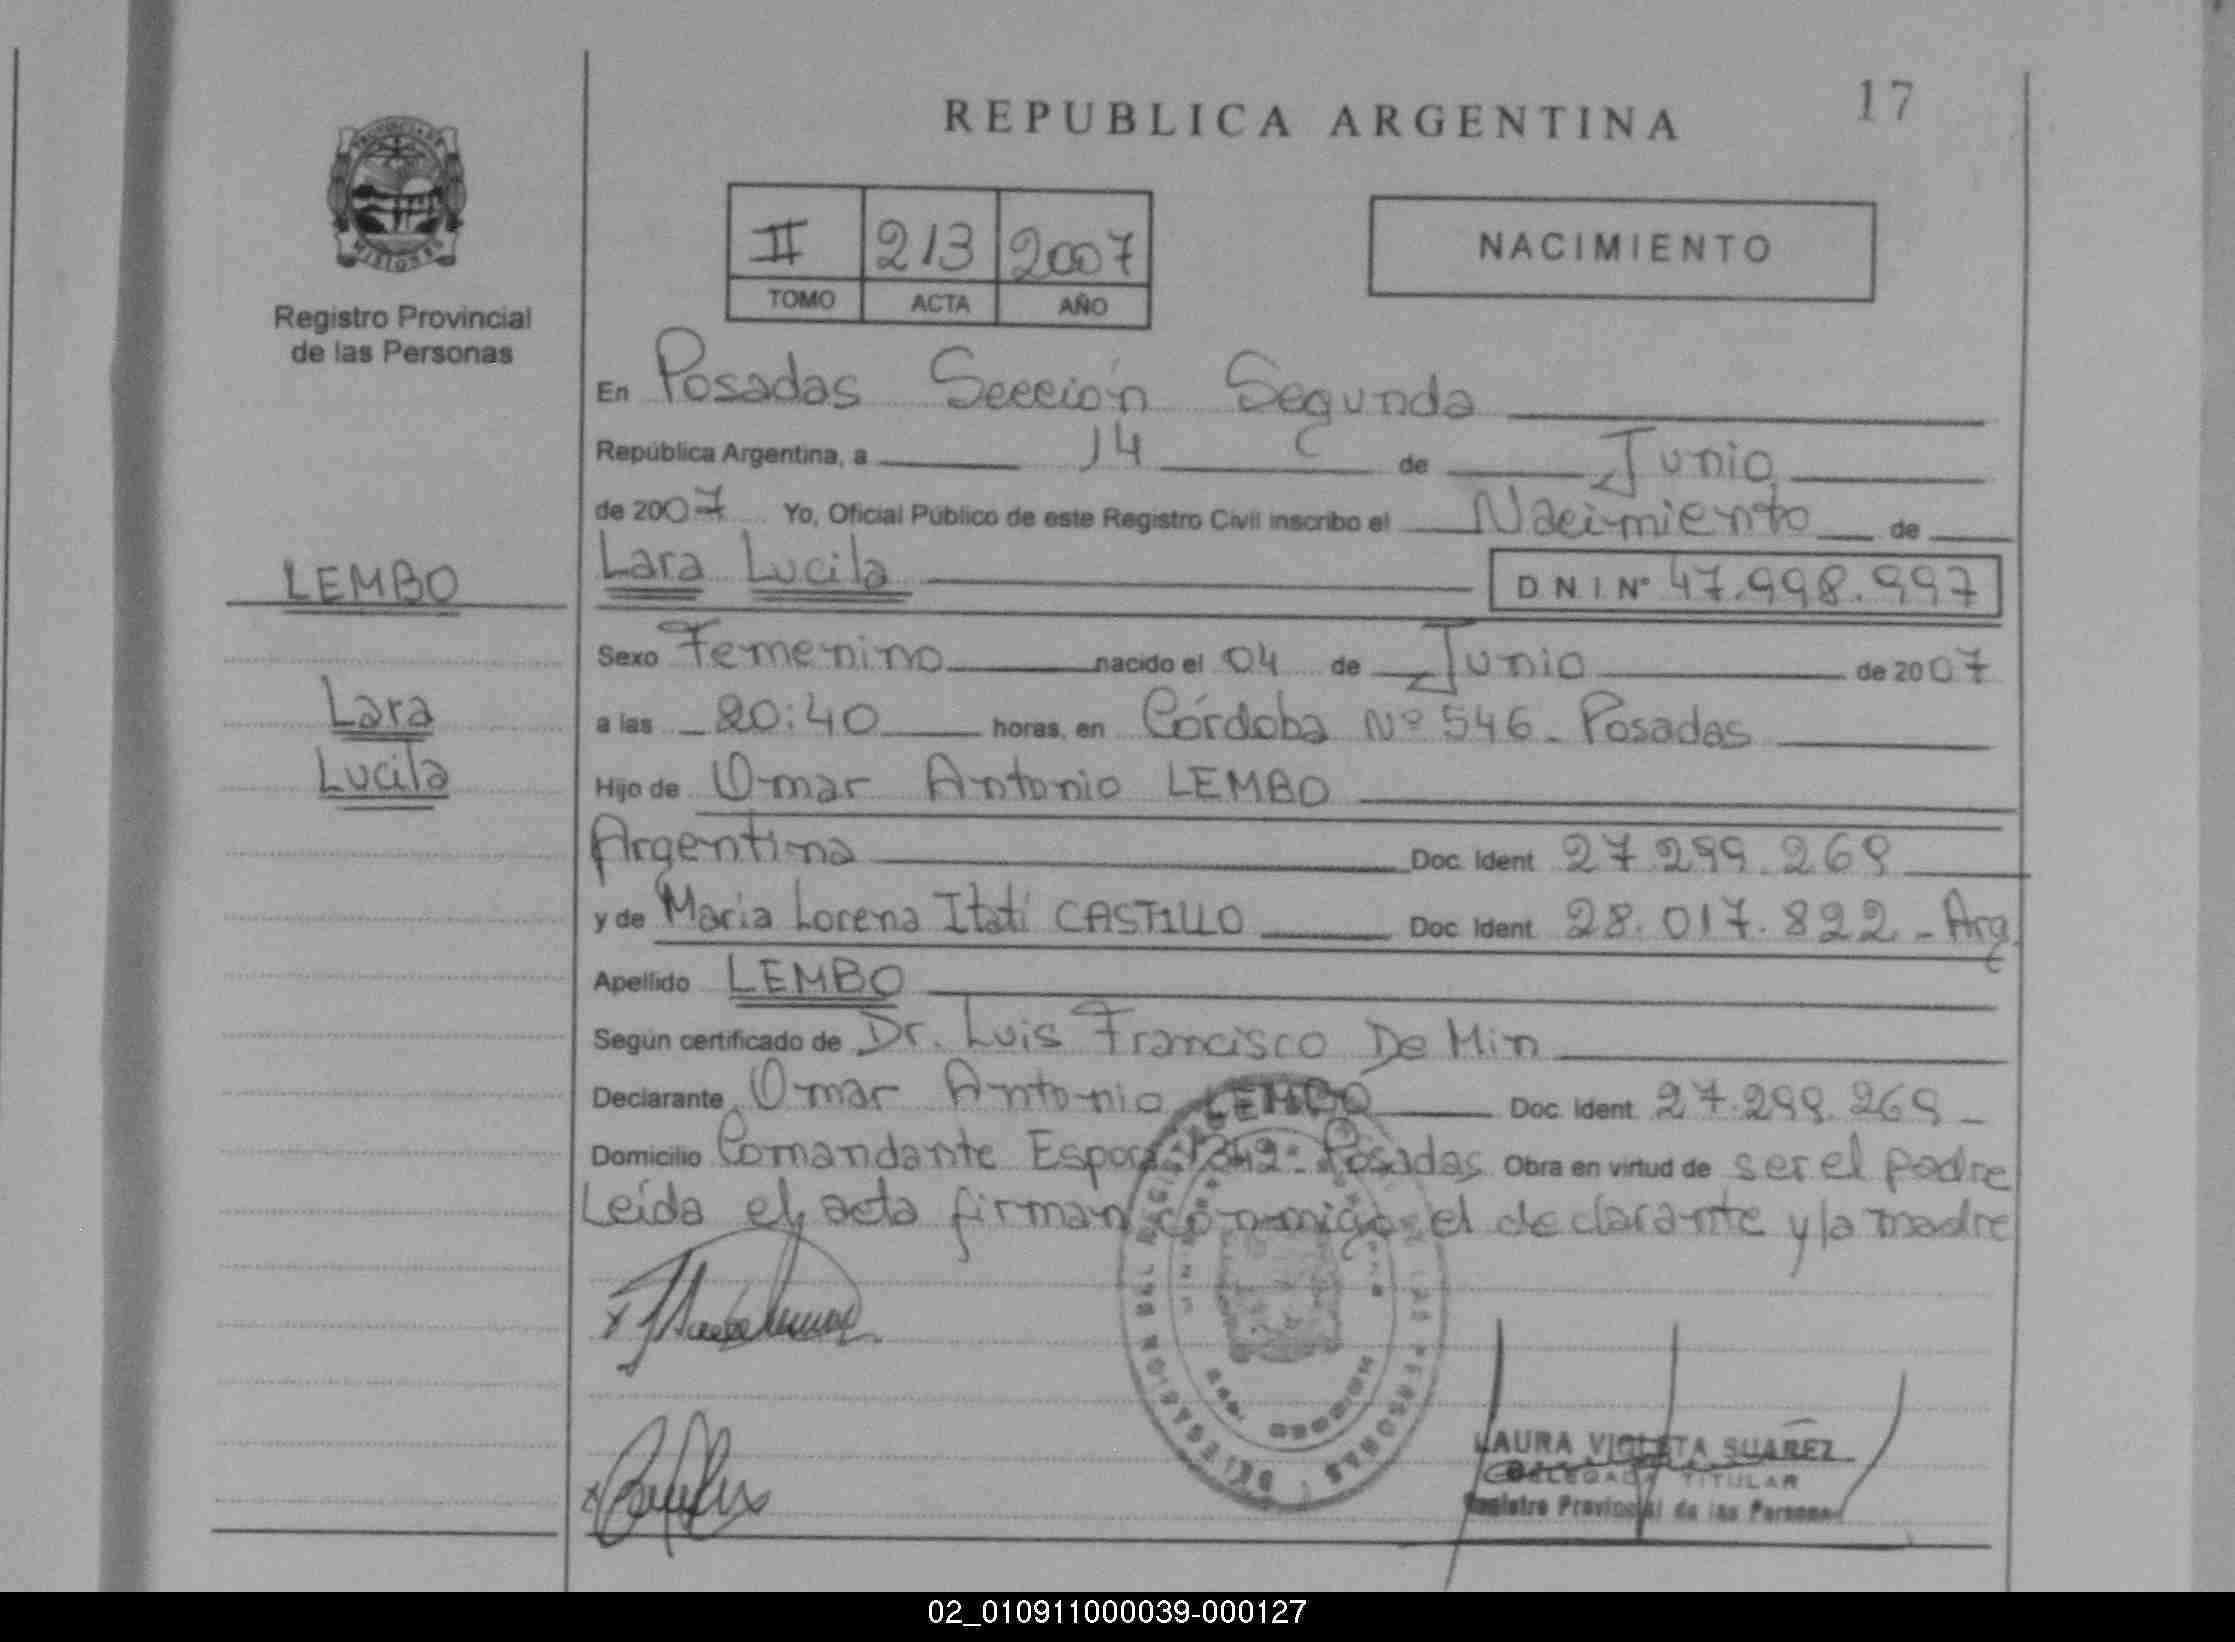 17
REPUBLICA ARGENTINA
PROVINCIA DE
MISIONES
Registro Provincial
de las Personas
II 213 2007
TOMO ACTA AÑO
NACIMIENTO
En Posadas Sección Segunda
República Argentina, a 14 de Junio
de 2007 Yo, Oficial Público de este Registro Civil inscribo el Nacimiento de
LEMBO
Lara Lucila D N I Nº 47.998.997
Sexo Femenino nacido el 04 de Junio de 2007
Lara
a las 20:40 horas, en Córdoba Nº 546 - Posadas
Lucila
Hijo de Omar Antonio LEMBO
Argentina Doc. Ident 27.299.269
y de Maria Lorena Itatí CASTILLO Doc. Ident 28.017.822 - Arg.
Apellido LEMBO
Según certificado de Dr. Luis Francisco De Min
Declarante Omar Antonio LEMBO Doc. Ident 27.299.269 -
Domicilio Comandante Espora - Posadas Obra en virtud de ser el padre
Leída el acta firman conmigo el declarante y la madre
DELEGACION DEL REGISTRO DE LAS PERSONAS
LAURA VIOLETA SUAREZ
DELEGADA TITULAR
Registro Provincial de las Personas
02_010911000039-000127